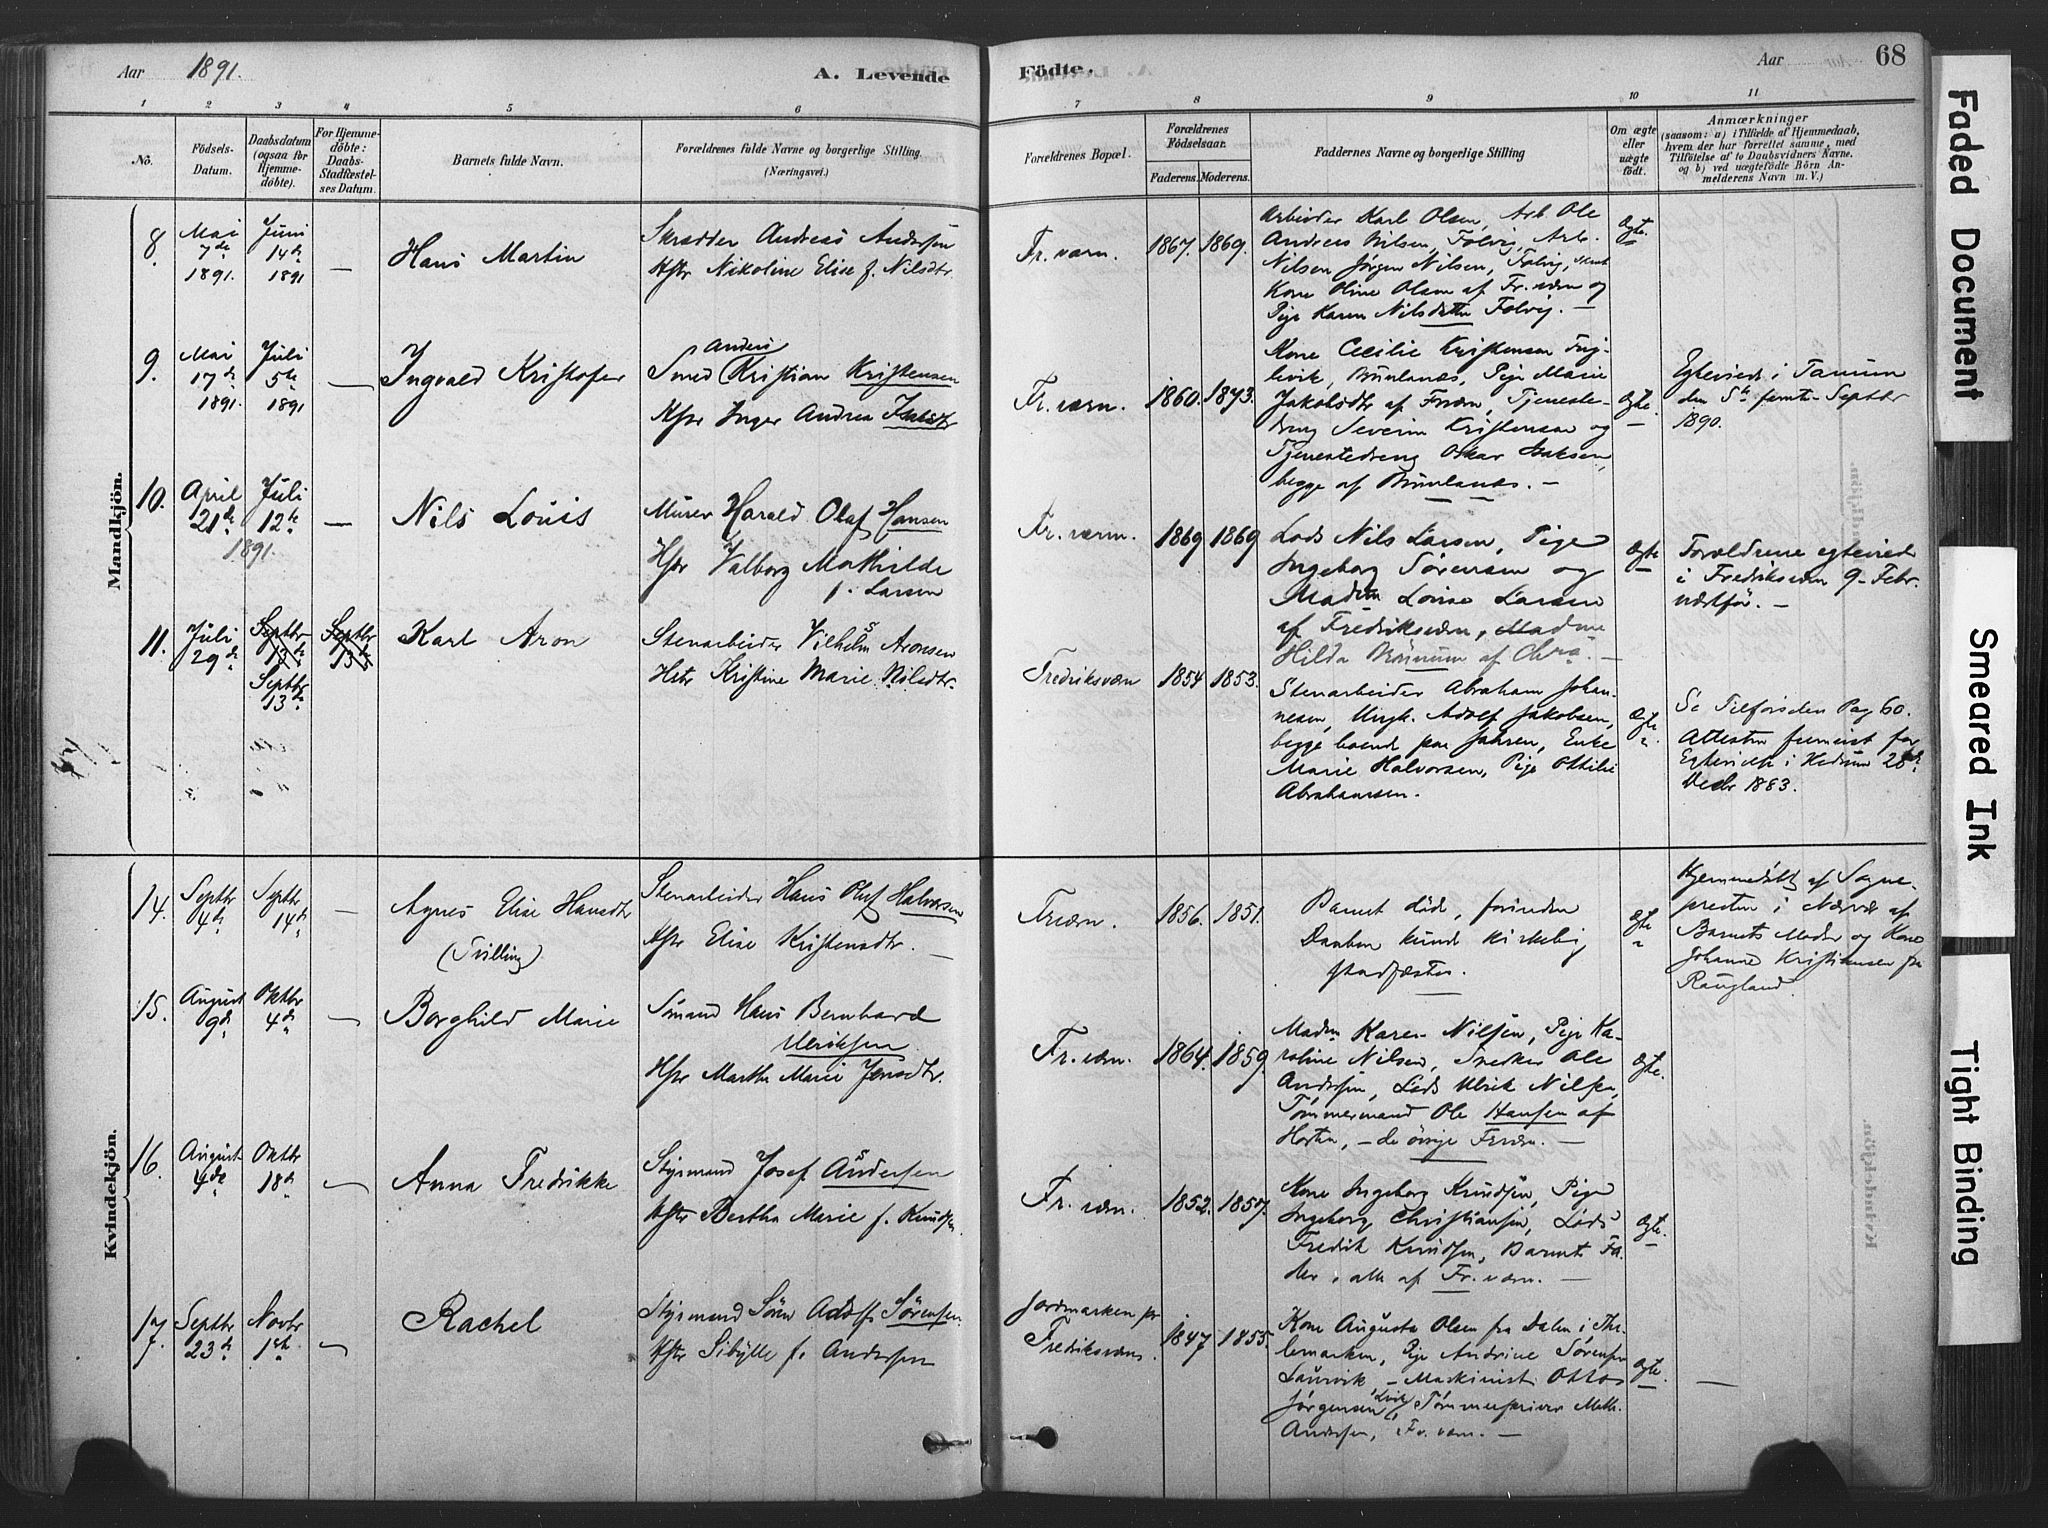 Aar 1891. A. Levende Födte. Aar 68
1 2 3 4 5 6 7 8 9 10 11
No.
Födsels-
Datum.
Daabsdatum
(ogsaa for
Hjemme-
döbte).
For Hjemme-
döbte:
Daabs-
Stadfæstel-
ses Datum.
Barnets fulde Navn.
Forældrenes fulde Navne og borgerlige Stilling.
(Næringsvei.)
Forældrenes Bopæl.
Forældrenes
Födselsaar.
Faderens. Moderens.
Faddernes Navne og borgerlige Stilling
Om ægte
eller
uægte
födt.
Anmærkninger
(saasom: a) i Tilfælde af Hjemmedaab,
hvem der har forrettet samme, med
Tilföielse af to Daabsvidners Navne,
og b) ved uægtefödte Börn An-
melderens Navn m. V.)
Mandkjön.
8.
Mai
7de
1891.
Juni
14de
1891
—
Hans Martin
Skrædder Andreas Andersen
Hstr Nikoline Elise f. Nilsdtr.
Fr.værn.
1867. 1869.
Arbeider Karl Olsen, Arb Ole
Andreas Nilsen, Folvig, Arb.
Nilsen Jørgen Nilsen, Folvig,
Kone Oline Olsen af Fr. værn og
Pige Karen Nilsdatter Folvig. —
Ægte.
9.
Mai
17de
1891.
Juli
5te
1891
—
Ingvald Kristofer
Anders
Smed Kristian Kristensen
Hstr Inger Andrea
Fr. værn.
1860. 1843.
Kone Cecilie Kristensen
Brunlanæs, Pige Marie
Jakobsdtr af Frværn, Tjeneste-
dreng Severin Kristensen og
Tjenestedreng Oskar Isaksen,
begge af Brunlanæs. —
Ægte.
Egteviede i Tanum
den 5te femte Septbr
1890.
10.
April
21de
1891.
Juli
12te
—
Nils Louis
Murer Harald Olaf Hansen
Hstr Valborg Mathilde
f. Larsen
Fr. værn.
1869 1869
Lods Nils Larsen, Pige
Ingeborg Sørensen og
Madm Louise Larsen
af Fredriksværn, Madme
Hilda Brønnum af Chra. —
Ægte
Forældrene egteviede
i Fredriksværn 9– Febr.
næstfør. —
11.
Juli
29de
Septbr
13de
Septbr
13de
Septbr
13de
Karl Aron
Stenarbeider Vilhelm Aronsen
Hstr Kristine Marie Nilsdtr.
Fredriksværn
1854 1853.
Stenarbeider Abraham Johan-
nesen, Ungk. Adolf Jakobsen,
begge boende paa Jahren, Enke
Marie Halvorsen, Pige Ottilie
Abrahamsen.
Ægte
Se Tilførselen Pag 60.
Attesten fremvist for
Egtevielse i Hedrum 28de
Decbr 1883.
Kvindekjön.
14.
Septbr
4de
Septbr
14de
—
Agnes Elise Hansdtr
(Tvilling)
Stenarbeider Hans Oluf Halvorsen
Hstr Elise Kristensdtr. —
Frværn.
1856. 1851.
Barnet døde, forinden
Daaben kunde kirkelig
stadfæstes.
Ægte
Hjemmedøbt af Sogne-
presten i Nærvær af
Barnets Moder og Kone
Johanne Kristiansen fra
Raugland.
15.
August
9de
Oktbr
4de
—
Borghild Marie
Sømand Hans Bernhard
Ulriksen
Hstr Marthe Marie Jensdtr.
Fr. værn.
1864. 1859.
Madm Karen Nilsen, Pige Ka-
roline Nilsen, Snedker Ole
Andersen, Lods Ulrik Nilsen,
Tømmermand Ole Hansen af
Horten, – de øvrige Frværn. —
Ægte.
16.
August
4de
Oktbr
18de
—
Anna Fredrikke
Styrmand Josef Andersen
Hstr Bertha Marie f. Knudsen.
Fr. værn.
1852. 1857.
Kone Ingeborg Knudsen, Pige
Ingeborg Christiansen, Lods
Fredrik Knudsen, Barnets Fa-
der, alle af Fr. værn. —
Ægte.
17.
Septbr
23de
Novbr
1ste
—
Rachel
Styrmand Sören Adolf Sørensen.
Hstr Sibylle f. Andersen
Jordmarken pr
Fredriksværn.
1847. 1855.
Kone Augusta Olsen fra Dalen i The-
lemarken, Pige Andrine Sørensen
Laurvik – Maskinist Otto
Jørgensen Lvik, Tømmerskriver Math.
Andersen, Fr. værn. —
Ægte.
—
Faded Document
Smeared Ink
Tight Binding